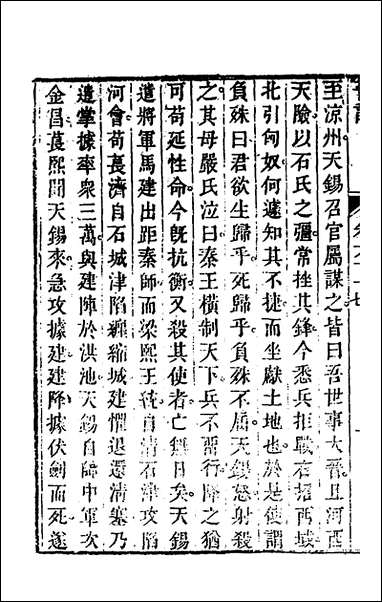 至涼州天錫召官屬謀之皆曰吾世事大晉且河西
天險以石氏之彊常挫其鋒今悉兵拒戰右招西域
北引匈奴何遽知其不捷而坐獻土地也於是使謂
負殊曰君欲生歸乎死歸乎負殊不屈天錫怒射殺
之其母嚴氏泣曰秦王橫制天下兵不留行降之猶
可苟延性命今旣抗衡又殺其使者亡無日矣天錫
遣將軍馬建出距秦師而梁熙王統自清石津攻陷
河會苟萇濟自石城津陷纏縮城建懼退還清塞乃
遣掌據率衆三萬與建陣於洪池天錫自歸中軍次
金昌萇熙聞天錫來急攻據建建降據伏劍而死遂